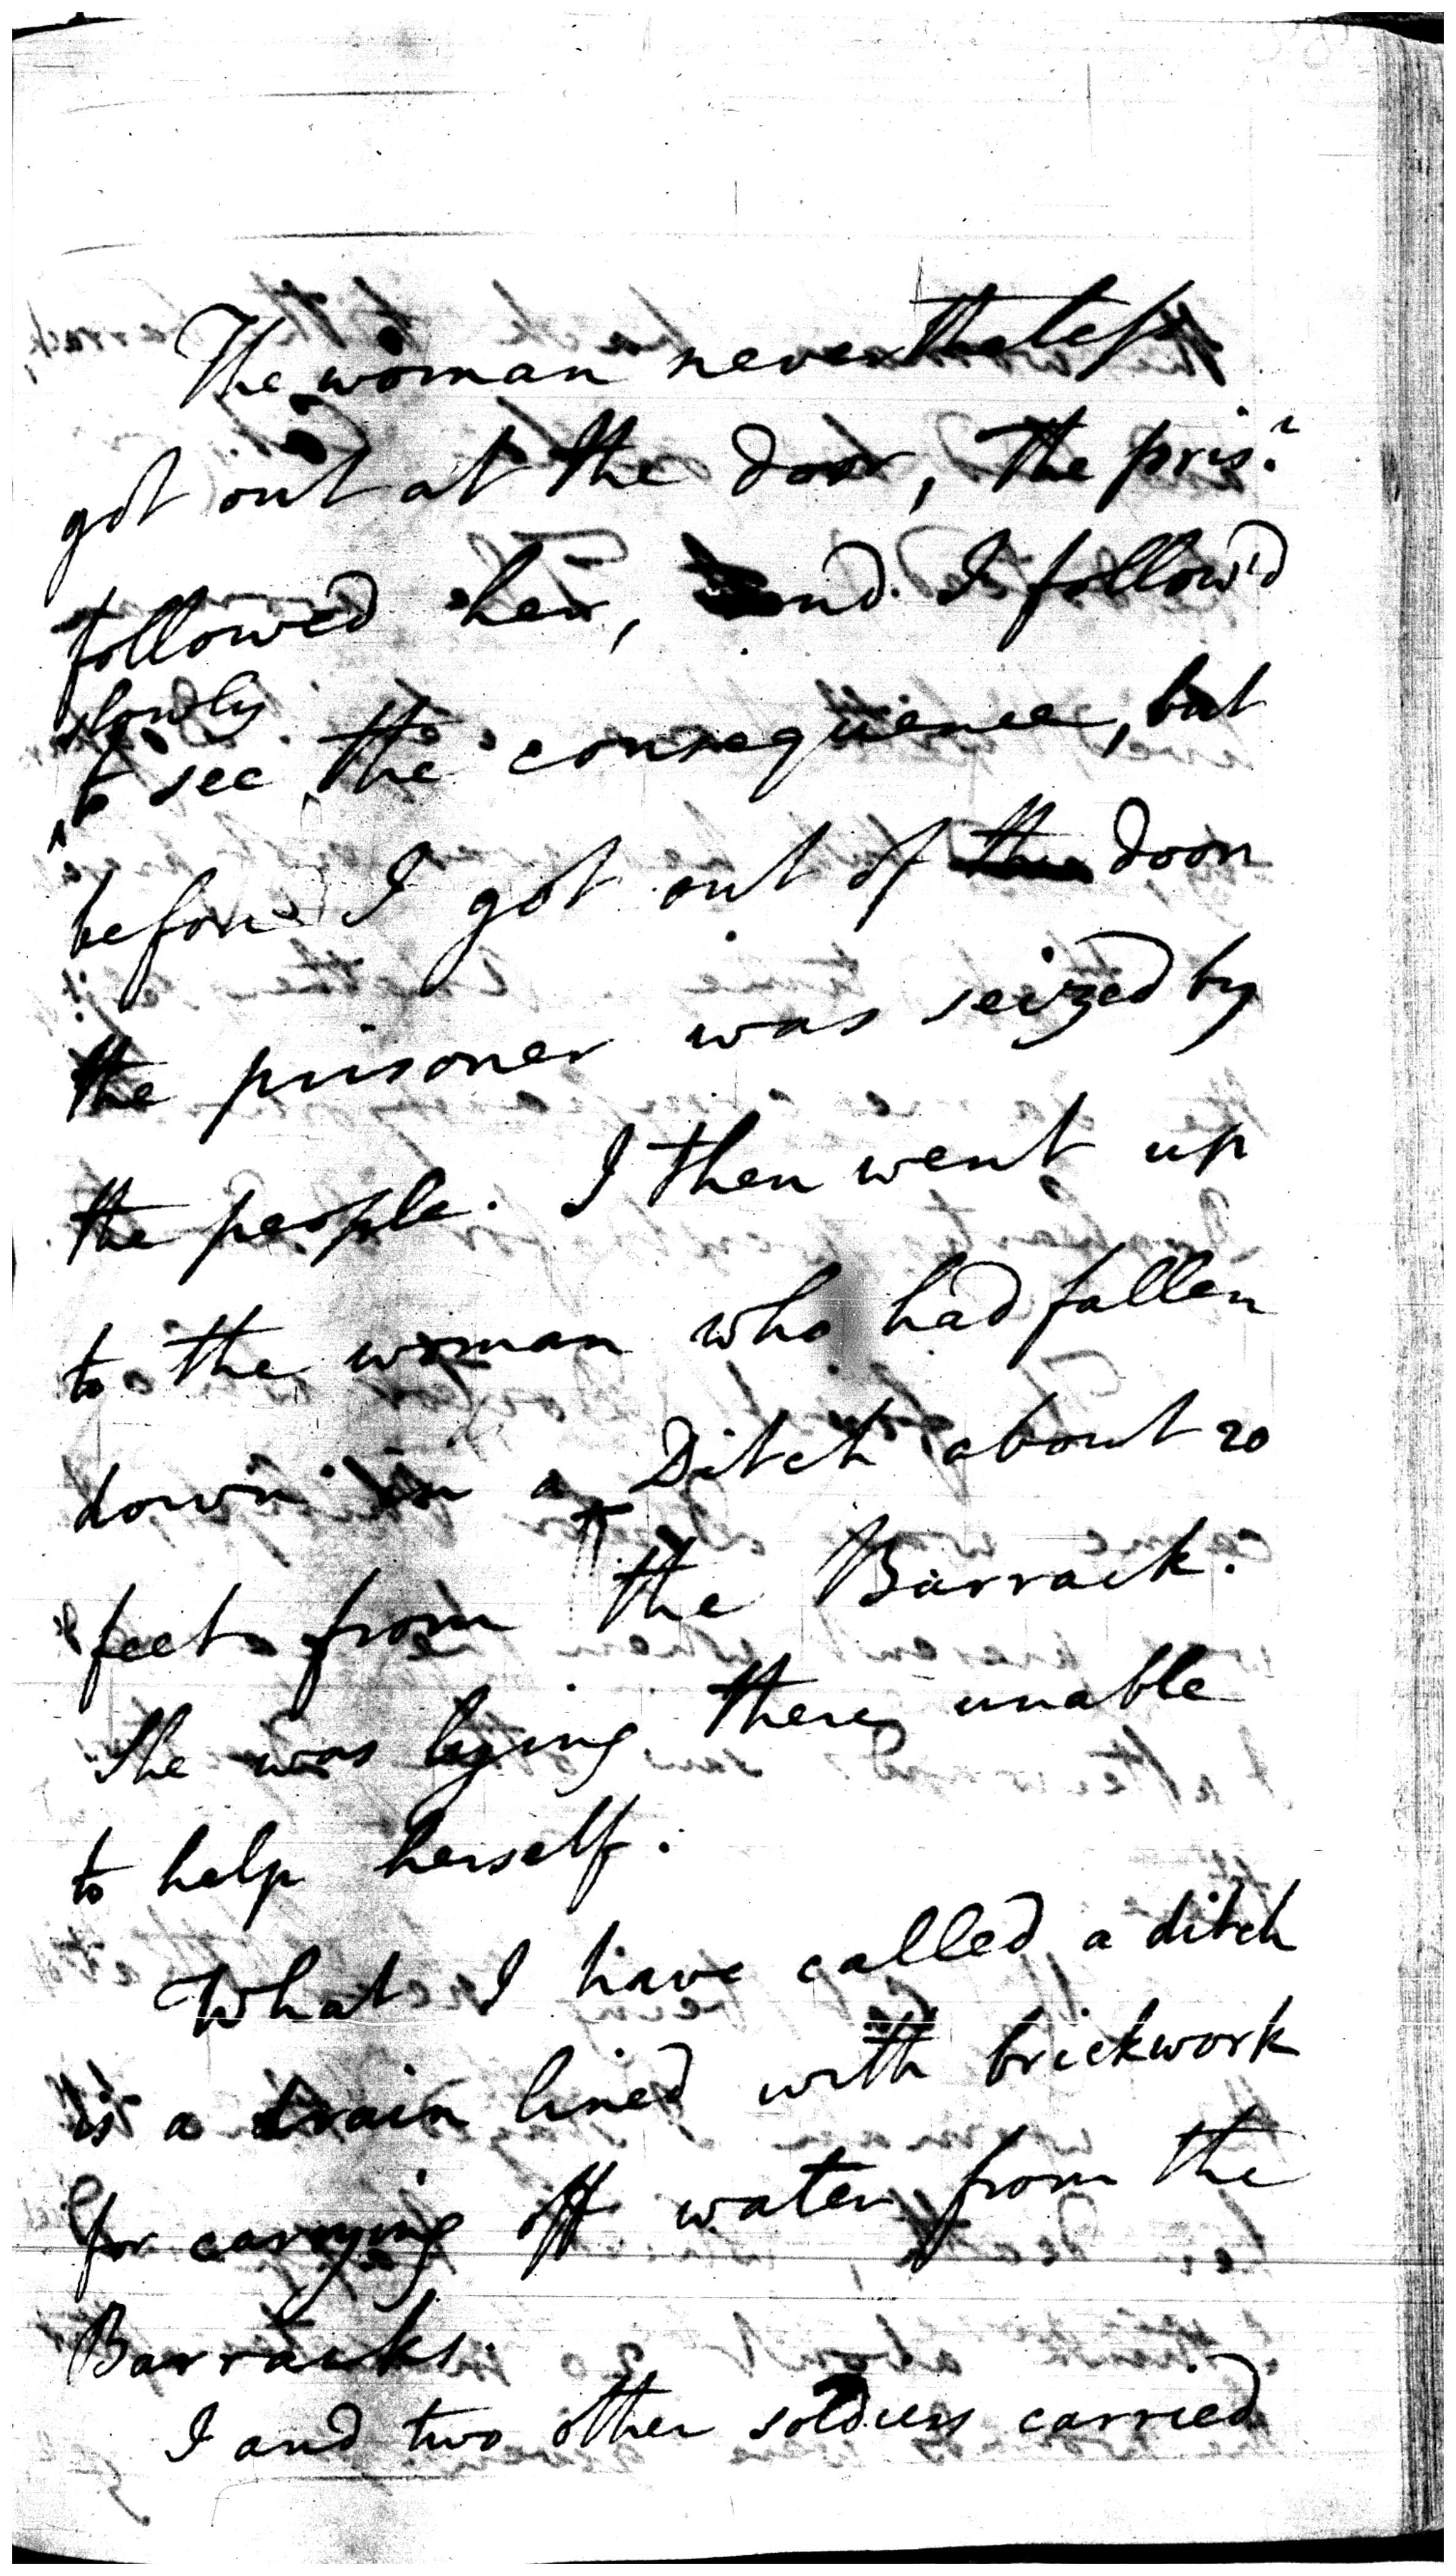 The woman nevertheless
got out at the door, the prisr
followed her, and I follow'd
slowly
to see the consequence, but
before I got out of the door
the prisoner was seized by
the people. I then went up
to the woman who had fallen
down in a Ditch about 20
feet from the Barrack.
She was lying there unable
to help herself.
What I have called a ditch
is a drain lined with brickwork
for carrying off water from the
Barracks.
I and two other soldiers carried